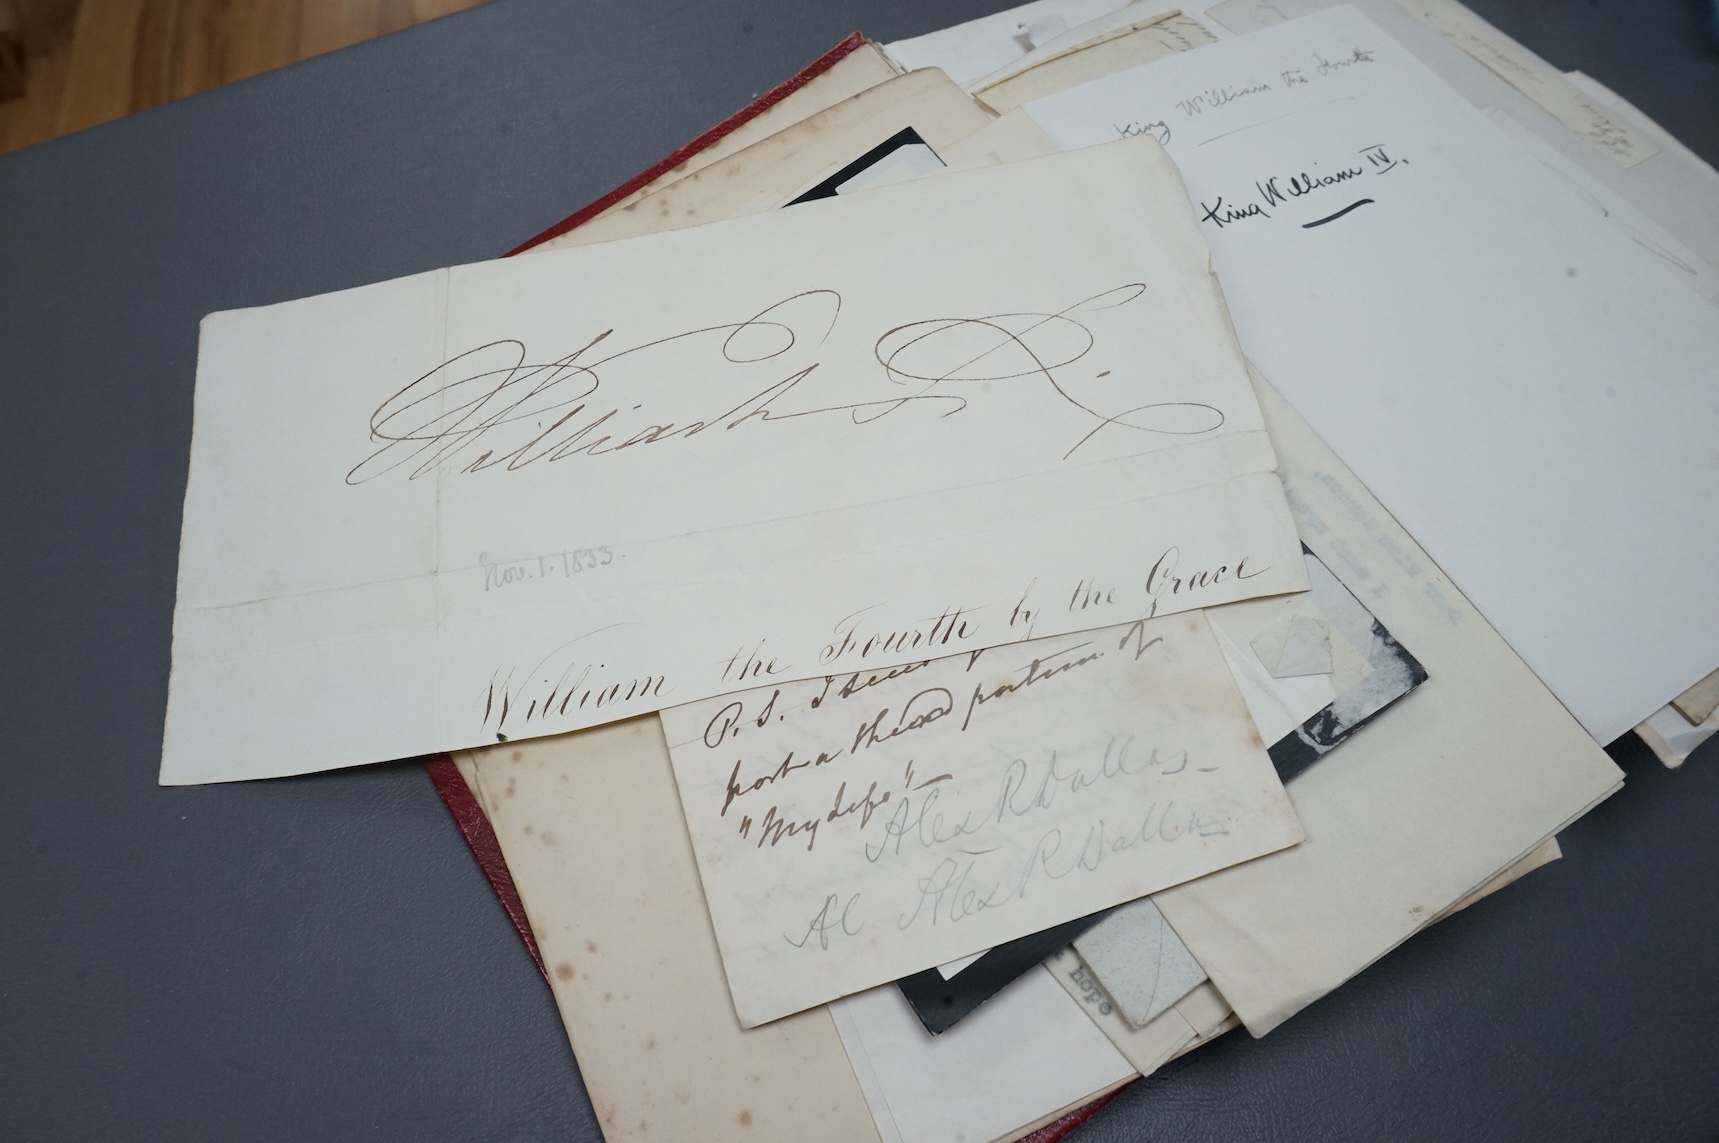 King William the Fourth
King William IV.
William R.
Nov. 1. 1833.
William the Fourth by the Grace
P.S. I
post a third portion of
"My Life"
Alex R Dallas
Al Alex R Dallas
hope